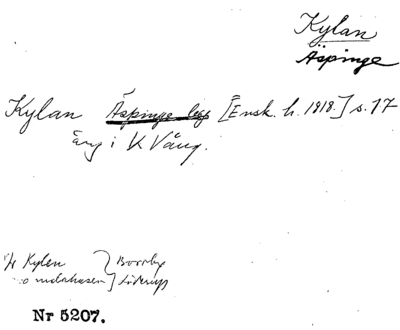 Kylan
Äspinge
Kylan Äspinge [Ensk. h. 1918.] s. 17
äng i K Vång.
Kylen } Borrby
] Löderup
Nr 5207.